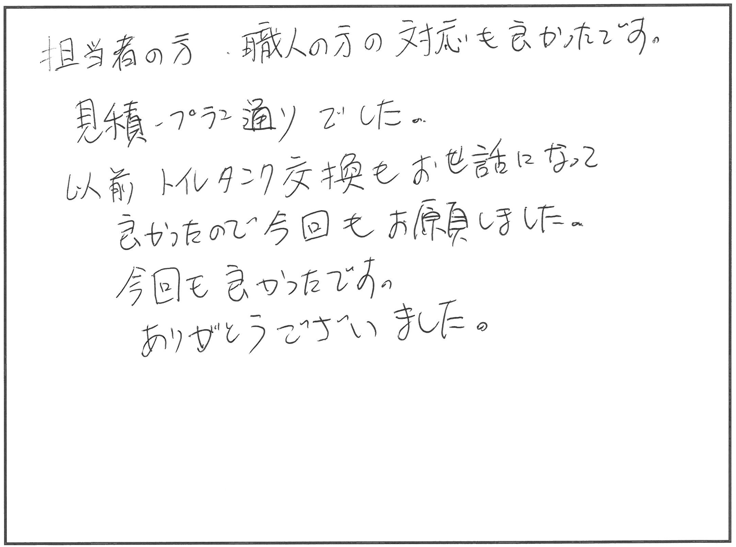 担当者の方、職人の方の対応も良かったです。
見積・プラン通りでした。
以前トイレタンク交換もお世話になって
良かったので今回もお願いしました。
今回も良かったです。
ありがとうございました。